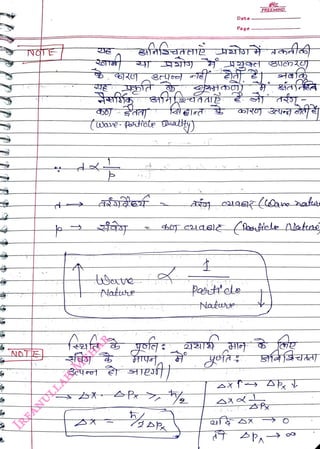 Date
Page
NOTE
यह अनिश्चितताएँ प्रयोग में तकनीकी
खामी या प्रयोग में प्रयुक्त उपकरण
के कारण उत्पन्न नहीं होती है। जबकि
यह प्रकृति के सूक्ष्मकणों में अंतर्निहित
नैसर्गिक अनिश्चितताएँ है जो तरंग-
कण द्वैतता सिद्धान्त के कारण उत्पन्न होती है।
(Wave-Particle Duality)
∵ λ ∝ 1/p
λ → तरंगदैर्ध्य = तरंग व्यवहार (Wave nature
p → संवेग = कण व्यवहार (Particle Nature)
↑ Wave Nature ∝ 1/Particle Nature ↓
NOTE
स्थिति के पूर्णतः यथार्थ मान के लिए
संवेग के मापन में पूर्णतः अनिश्चितता
उत्पन्न हो जाएगी।
→ Δx · Δpx ≥ ħ/2
Δx = ħ/2Δpx
Δx ↑ → Δpx ↓
Δx ∝ 1/Δpx
यदि Δx → 0
तो Δpx → ∞
IRFANULLAH MEHAR